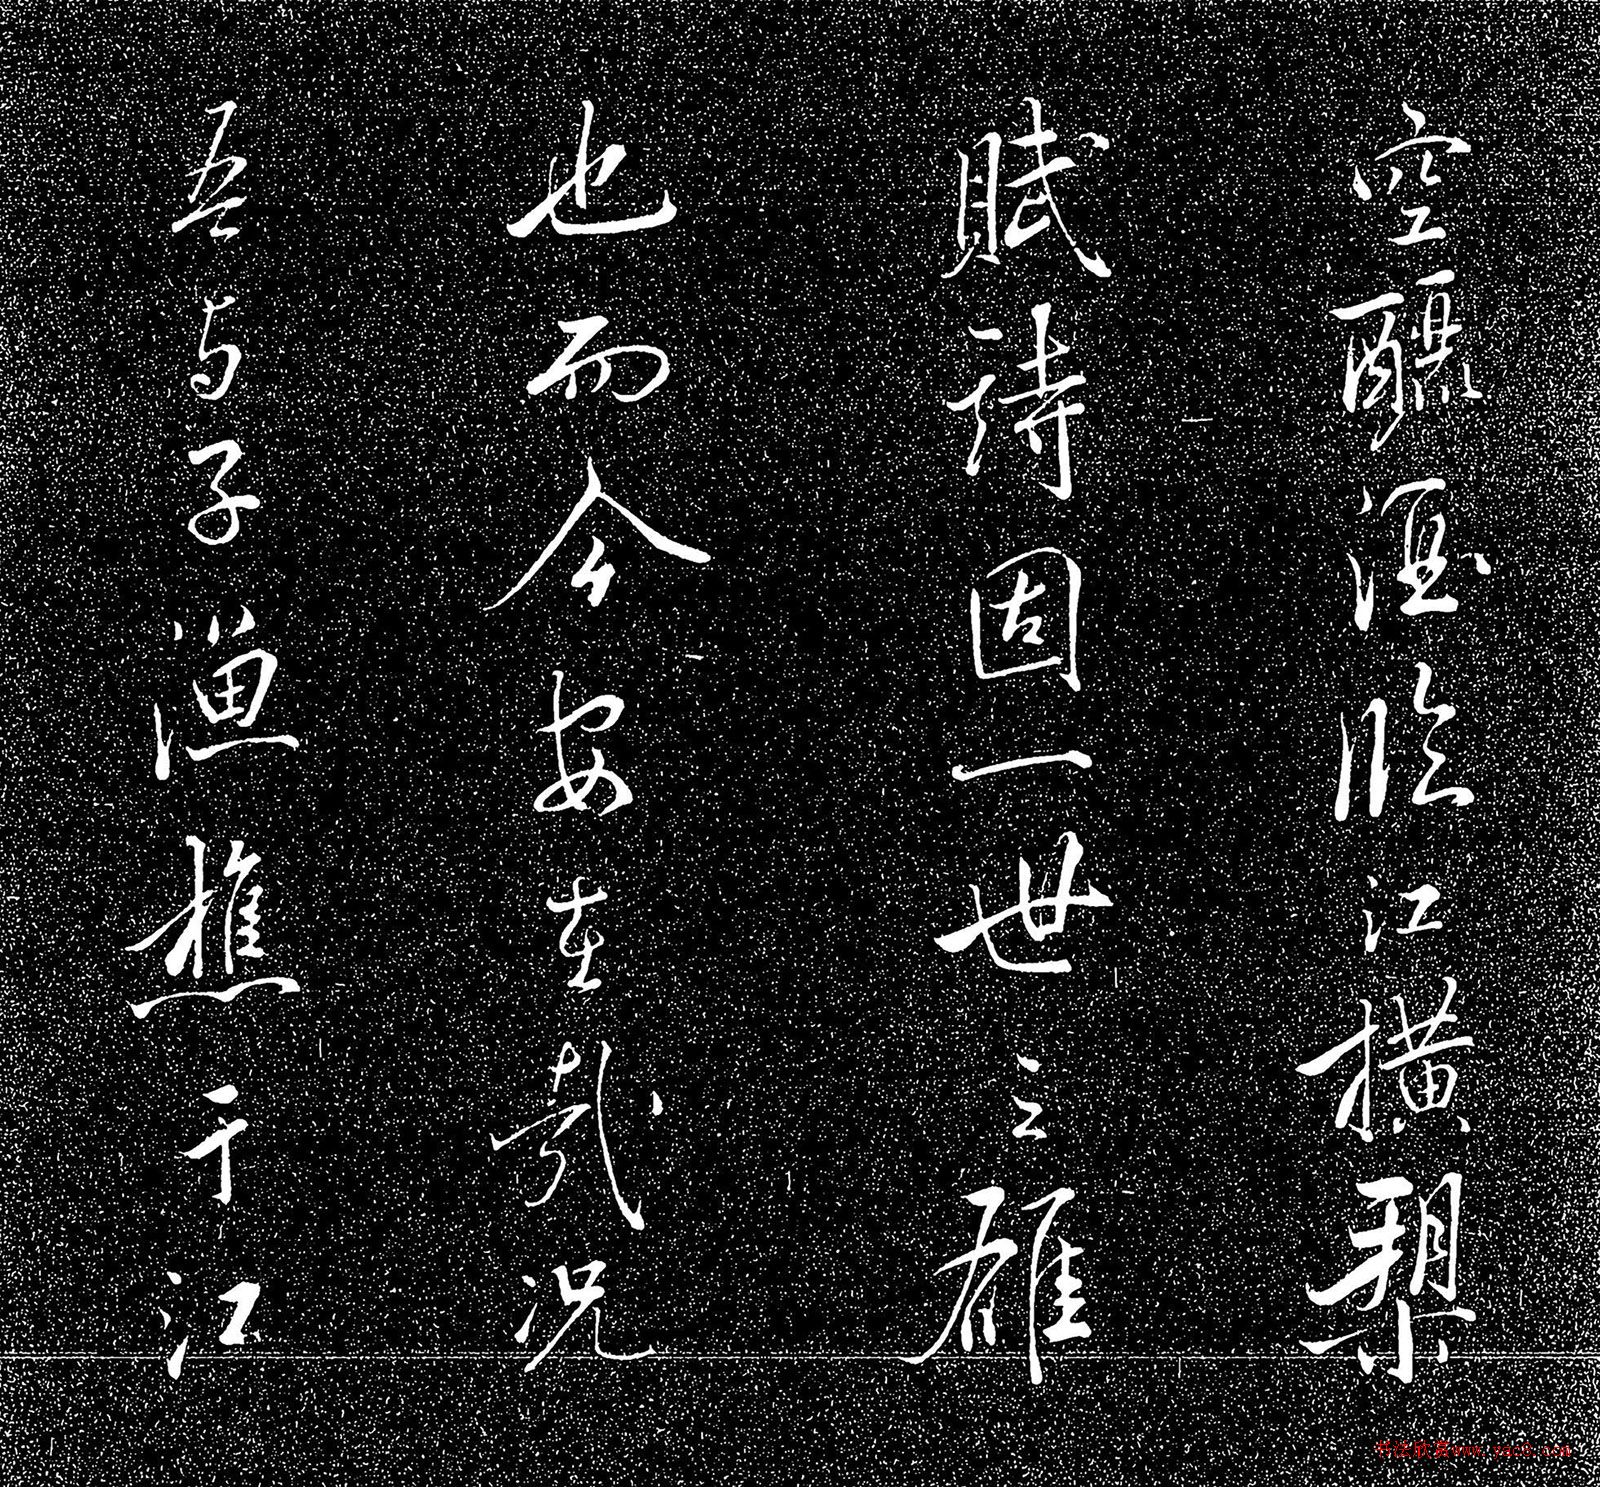 空釃酒臨江橫槊
賦詩固一世之雄
也而今安在哉況
吾与子漁樵于江
书法欣赏www.yac8.com